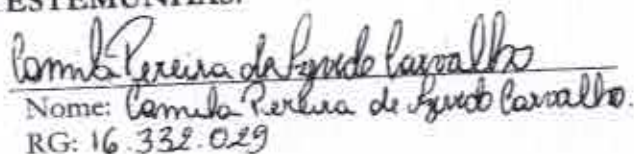 ESTEMUNHAS:
Camila Pereira de Azevedo Carvalho
Nome: Camila Pereira de Azevedo Carvalho.
RG: 16.332.029